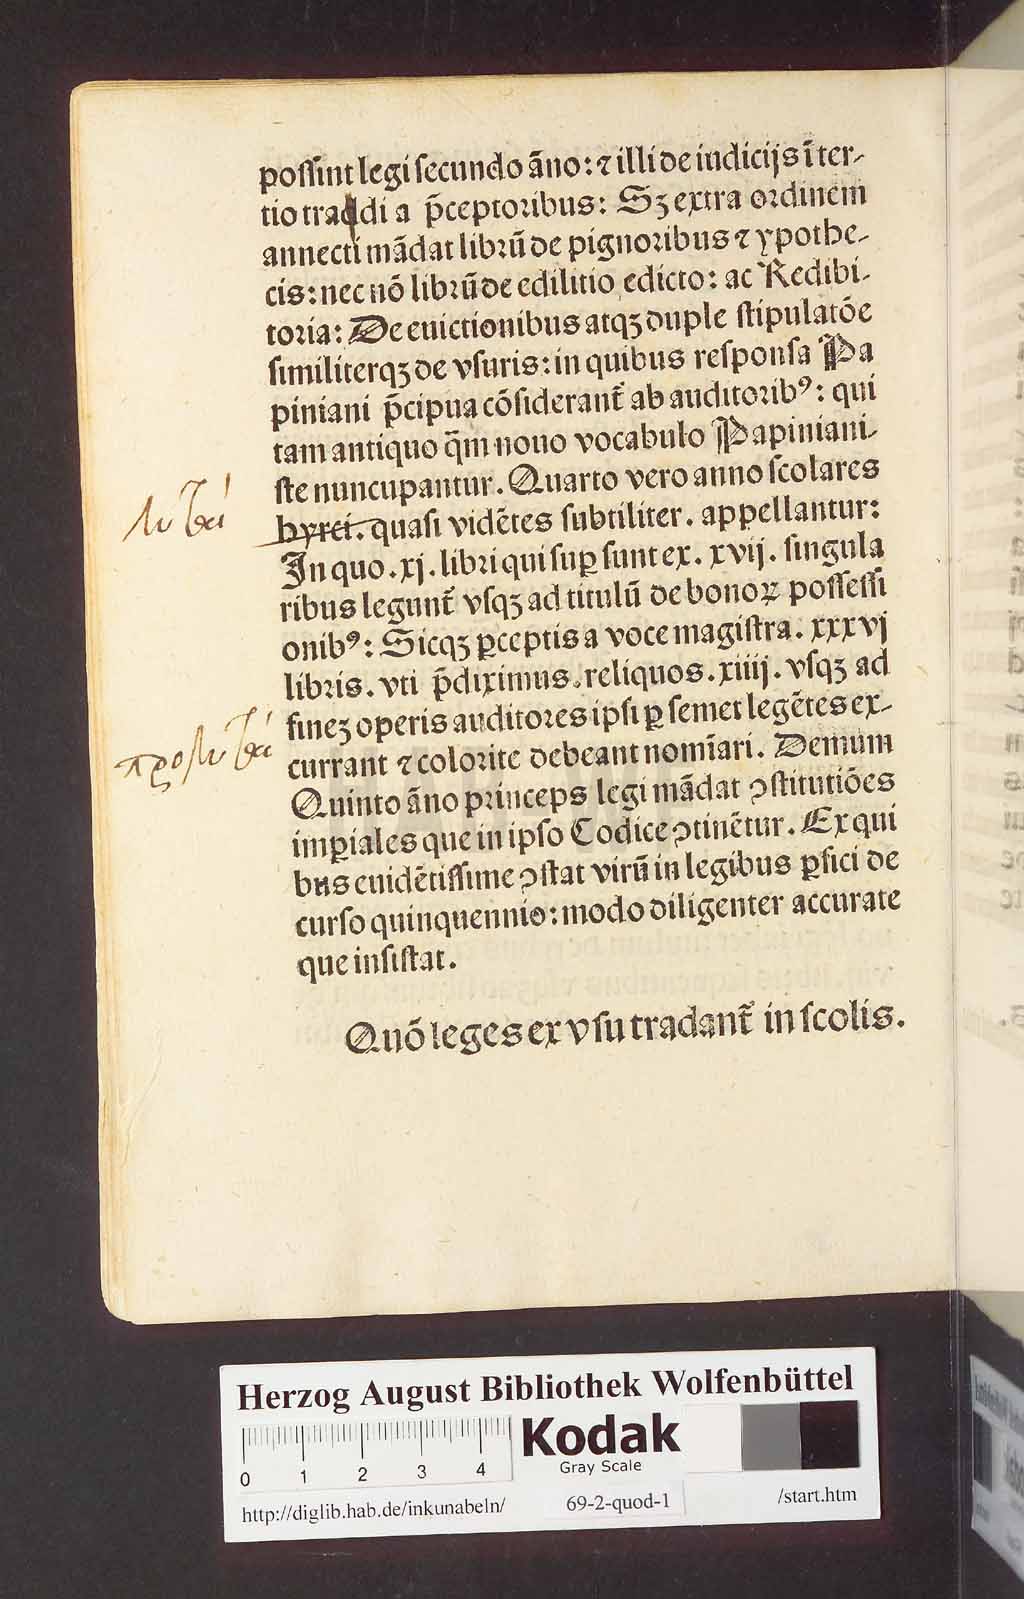 possint legi secundo āno: ⁊ illi de iudicijs ī ter-
tio traddi a p̄ceptoribus: Sꝫ extra ordinem
annecti mādat librū de pignoribus ⁊ ypothe-
cis: nec nō librū de edilitio edicto: ac Redibi-
toria: De euictionibus atqꝫ duple stipulatōe
similiterqꝫ de vsuris: in quibus responsa Pa
piniani p̄cipua cōsiderant᷑ ab auditoribꝰ: qui
tam antiquo q̄m nouo vocabulo Papiniani-
ste nuncupantur. Quarto vero anno scolares
λυταί
hyrci. quasi vidētes subtiliter. appellantur:
In quo .xj. libri qui suꝑ sunt ex. xvij. singula
ribus legunt᷑ vsqꝫ ad titulū de bonoꝝ possessi
onibꝰ: Sicqꝫ ꝑceptis a voce magistra. xxxvj
libris. vti p̄diximus. reliquos. xiiij. vsqꝫ ad
fineꝫ operis auditores ipsi ꝑ semet legētes ex-
προλυταί
currant ⁊ colorite debeant nomīari. Demum
Quinto āno princeps legi mādat ꝯstitutiōes
imꝑiales que in ipso Codice ꝯtinētur. Ex qui
bus euidētissime ꝯstat virū in legibus ꝑfici de
curso quinquennio: modo diligenter accurate
que insistat.
Quō leges ex vsu tradant᷑ in scolis.
Herzog August Bibliothek Wolfenbüttel
Kodak
Gray Scale
0 1 2 3 4
http://diglib.hab.de/inkunabeln/ 69-2-quod-1 /start.htm